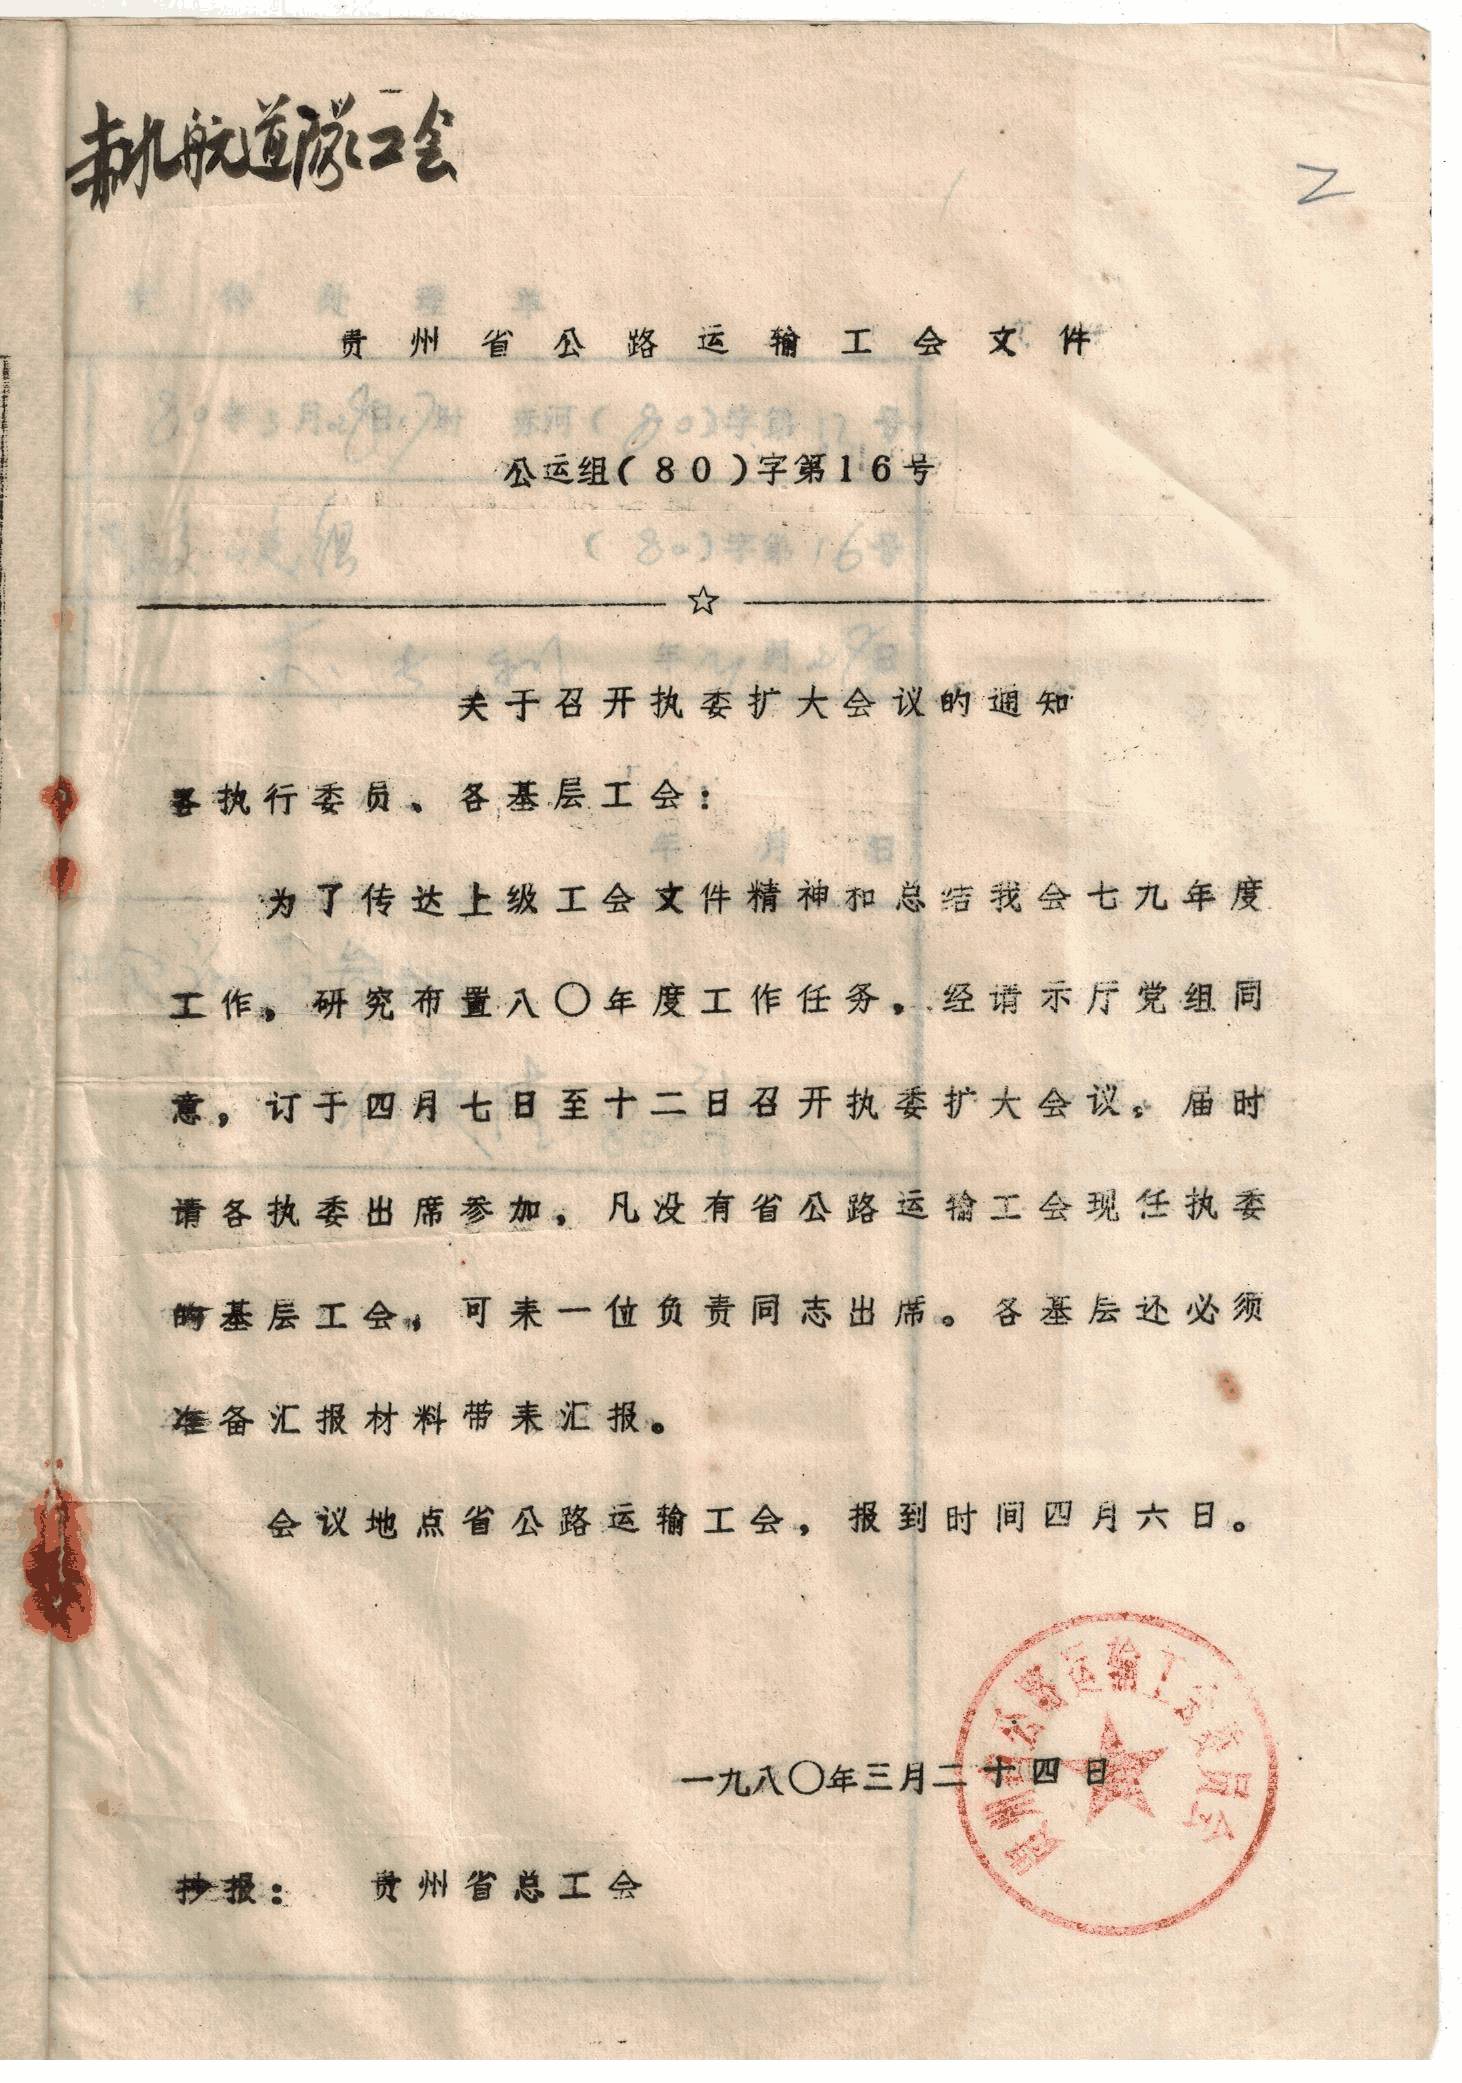 赤水航道队工会
2
贵州省公路运输工会文件
公运组(80)字第16号
关于召开执委扩大会议的通知
各执行委员、各基层工会:
为了传达上级工会文件精神和总结我会七九年度
工作,研究布置八〇年度工作任务,经请示厅党组同
意,订于四月七日至十二日召开执委扩大会议。届时
请各执委出席参加,凡没有省公路运输工会现任执委
的基层工会,可来一位负责同志出席。各基层还必须
准备汇报材料带来汇报。
会议地点省公路运输工会,报到时间四月六日。
贵州省公路运输工会委员会
一九八〇年三月二十四日
抄报: 贵州省总工会